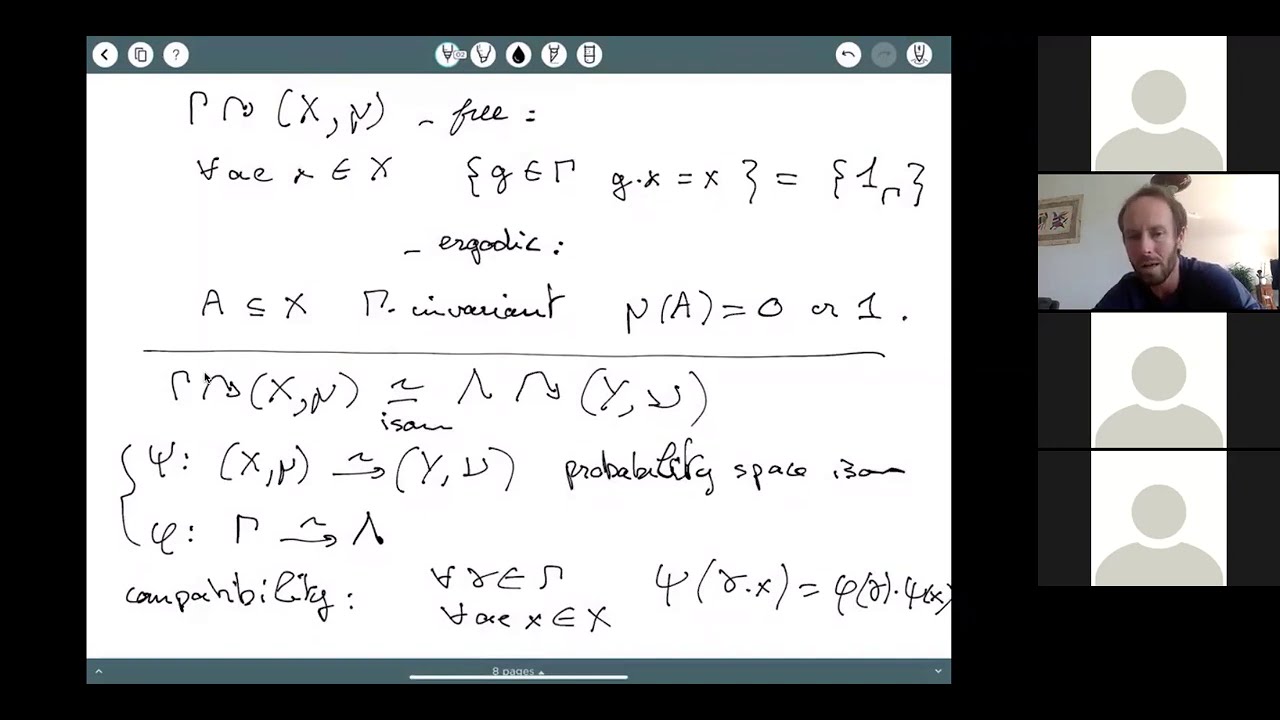 ?
02
Γ ↷ (X, μ) - free :
∀ ae x ∈ X {g ∈ Γ g·x = x} = {1_Γ}
- ergodic :
A ⊆ X Γ-invariant μ(A) = 0 or 1.
Γ ↷ (X, μ) ≃ Λ ↷ (Y, ν)
isom
ψ: (X, μ) ⥲ (Y, ν) probability space isom
φ: Γ ⥲ Λ
compatibility: ∀ γ ∈ Γ ψ(γ.x) = φ(γ).ψ(x)
∀ ae x ∈ X
8 pages